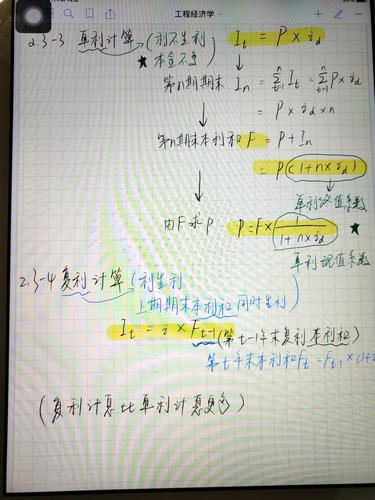 工程经济学
2.3-3 单利计算 (利不生利 It = P × id
★本金不变)
第n期期末 In = Σ It = Σ P × id
= P × id × n
第n期期末本利和 F = P + In
= P(1+n×id)
单利终值系数
由F求P P = F × 1/(1+n×id) ★
单利现值系数
2.3-4 复利计算 (利生利
上期期末本利和同时生利)
It = i × Ft-1 (第t-1年末复利本利和)
第t年末本利和Ft = Ft-1 × (1+
(复利计息比单利计息更多)